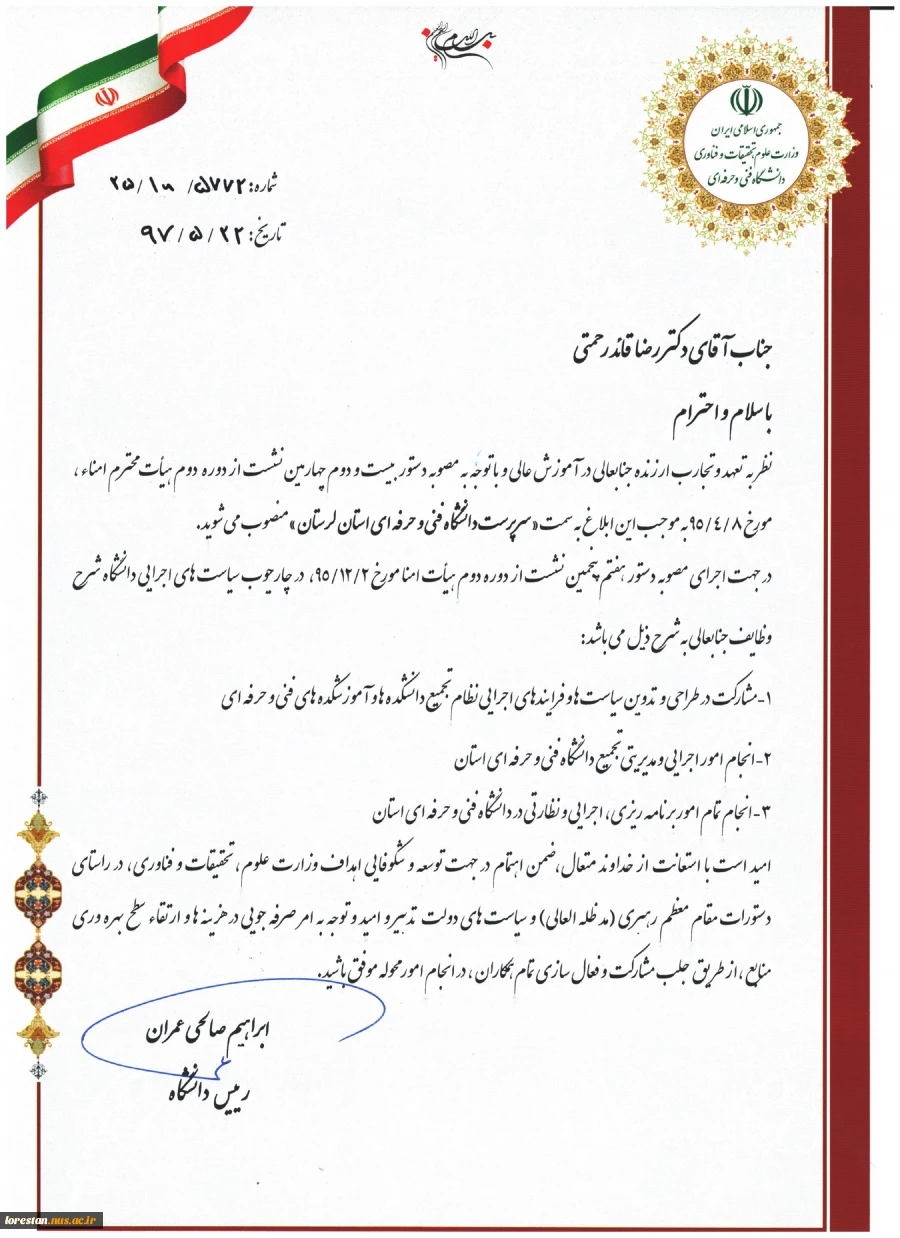 بسم الله الرحمن الرحیم
جمهوری اسلامی ایران
وزارت علوم، تحقیقات و فناوری
دانشگاه فنی و حرفه ای
شماره: ۲۵/۱۰۰/۵۷۷۲
تاریخ: ۹۷/۵/۲۲
جناب آقای دکتر رضا قائدرحمتی
با سلام و احترام
نظر به تعهد و تجارب ارزنده جنابعالی در آموزش عالی و با توجّه به مصوبه دستور بیست و دوم چهارمین نشست از دوره دوم هیأت محترم امناء ،
مورخ ۹۵/۴/۸ به موجب این ابلاغ به سمت «سرپرست دانشگاه فنی و حرفه ای استان لرستان» منصوب می شوید.
در جهت اجرای مصوبه دستور هفتم پنجمین نشست از دوره دوم هیأت امنا مورخ ۹۵/۱۲/۲، در چارچوب سیاست های اجرایی دانشگاه شرح
وظایف جنابعالی به شرح ذیل می باشد:
۱-مشارکت در طراحی و تدوین سیاست ها و فرایندهای اجرایی نظام تجمیع دانشکده ها و آموزشکده های فنی و حرفه ای
۲-انجام امور اجرایی و مدیریتی تجمیع دانشگاه فنی و حرفه ای استان
۳-انجام تمام امور برنامه ریزی، اجرایی و نظارتی در دانشگاه فنی و حرفه ای استان
امید است با استعانت از خداوند متعال، ضمن اهتمام در جهت توسعه و شکوفایی اهداف وزارت علوم، تحقیقات و فناوری، در راستای
دستورات مقام معظم رهبری (مد ظله العالی) و سیاست های دولت تدبیر و امید و توجه به امر صرفه جویی در هزینه ها و ارتقاء سطح بهره وری
منابع ، از طریق جلب مشارکت و فعال سازی تمام همکاران ، در انجام امور محوله موفق باشید.
ابراهیم صالحی عمران
رییس دانشگاه
lorestan.nus.ac.ir